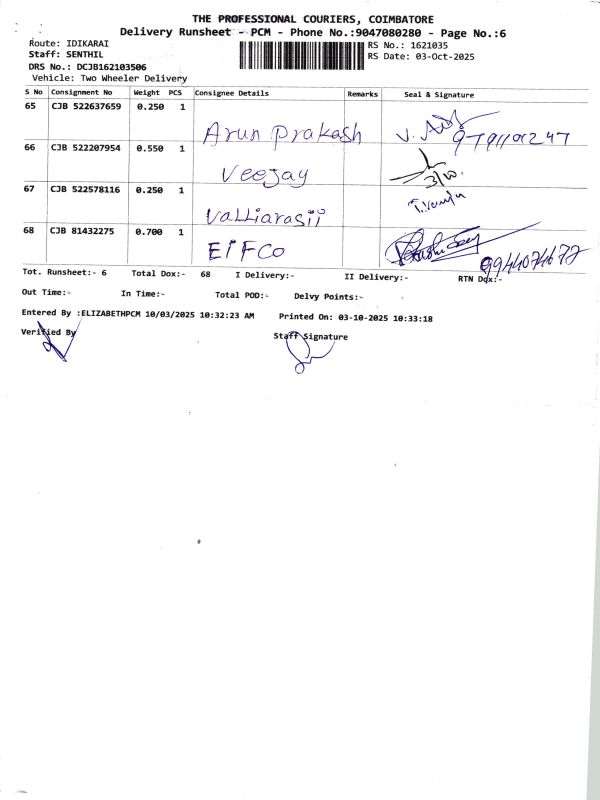 THE PROFESSIONAL COURIERS, COIMBATORE
Delivery Runsheet - PCM - Phone No.:9047080280 - Page No.:6
Route: IDIKARAI
Staff: SENTHIL
RS No.: 1621035
RS Date: 03-Oct-2025
DRS No.: DCJB162103506
Vehicle: Two Wheeler Delivery
S No Consignment No Weight PCS Consignee Details Remarks Seal & Signature
65 CJB 522637659 0.250 1
Arun Prakash
66 CJB 522207954 0.550 1
Veejay 3/10.
67 CJB 522578116 0.250 1
Valliarasii
68 CJB 81432275 0.700 1
EIFCO
Tot. Runsheet:- 6 Total Dox:- 68 I Delivery:- II Delivery:- RTN Dox:-
Out Time:- In Time:- Total POD:- Delvy Points:-
Entered By :ELIZABETHPCM 10/03/2025 10:32:23 AM Printed On: 03-10-2025 10:33:18
Verified By Staff Signature